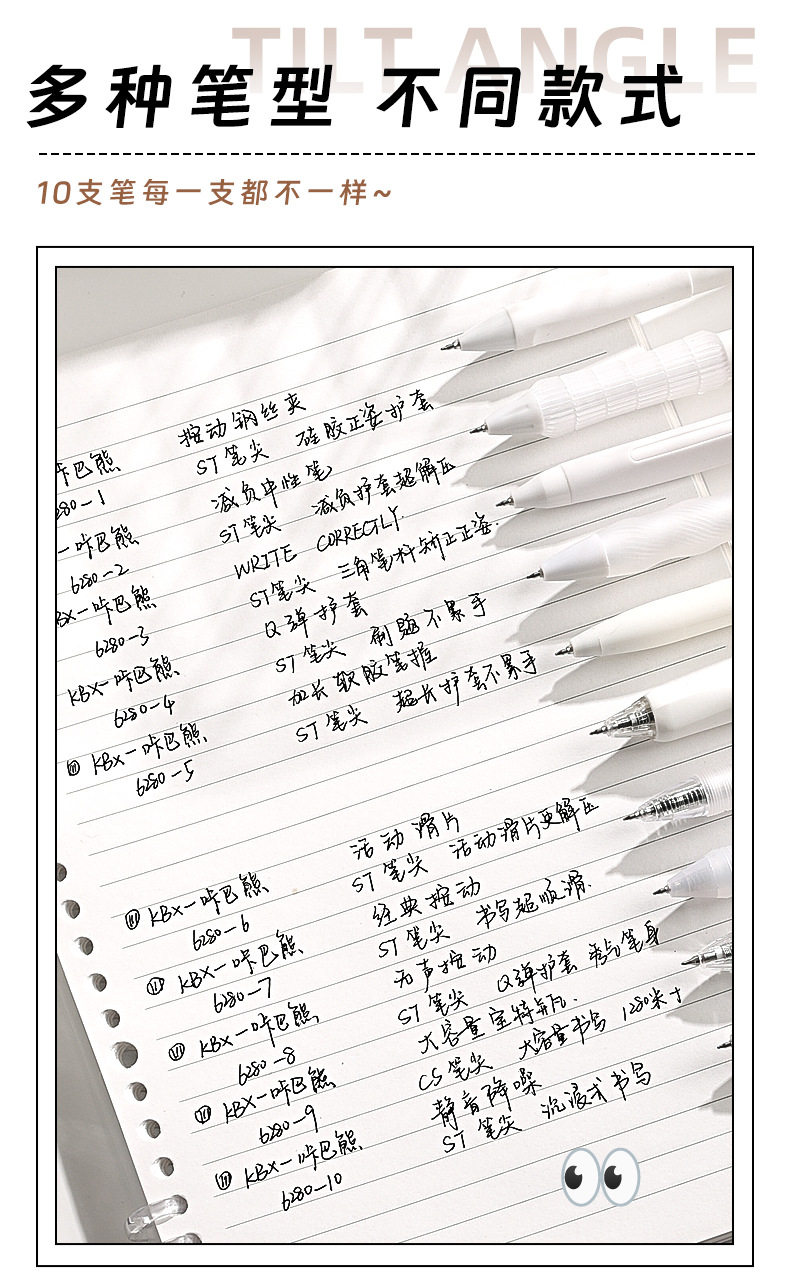 TILT ANGLE
多种笔型 不同款式
10支笔每一支都不一样~
按动钢丝夹
咔巴熊 ST笔尖 硅胶正姿护套
280-1 减负中性笔
-咔巴熊 ST笔尖 减负护套超解压
6280-2 WRITE CORRECTLY
BX-咔巴熊 ST笔尖 三角笔杆矫正正姿.
6280-3 Q弹护套
KBX-咔巴熊 ST笔尖 刷题不累手
6280-4 加长软胶笔握
KBX-咔巴熊 ST笔尖 超长护套不累手
6280-5
活动滑片
KBX-咔巴熊 ST笔尖 活动滑片更解压
6280-6 经典按动
KBX-咔巴熊 ST笔尖 书写超顺滑.
6280-7 无声按动
KBX-咔巴熊 ST笔尖 Q弹护套 秀气笔身
6280-8 大容量宝特瓶.
KBX-咔巴熊 CS笔尖 大容量书写 1280米+
6280-9 静音降噪
KBX-咔巴熊 ST笔尖 沉浸式书写
6280-10